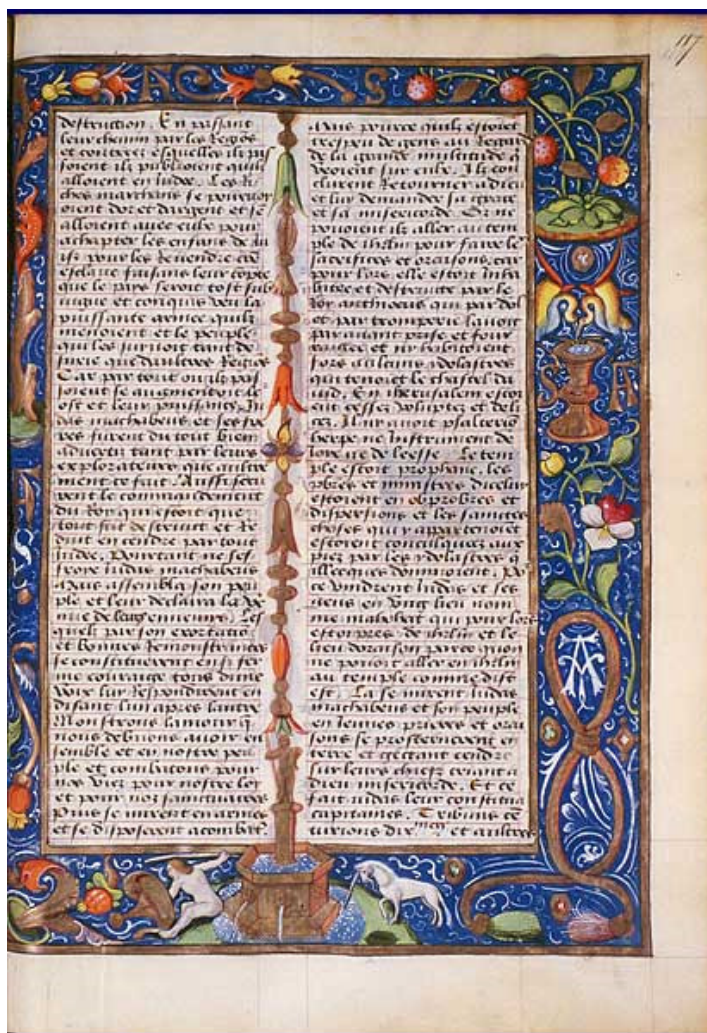 117
A C S
destruction. En passant
leur chemin par les Regiõs
et contrees esquelles ilz pas
soient ilz publioient quilz
alloient en Iudee. Les Ri
ches marchans se pourvoy
oient dor et dargent et se
alloient avec eulx pour
achapter les enfans de
pour les Revendre cõe
esclaue faisans leur copte
que le pays seroit tost sub
iugue et conquis veu la
puissante armee quilz
menoient et le peuple
qui les suivoit tant de
surie que daultres Regiõs
Car par tout ou ilz pas
soient se augmentoit le
ost et leur puissance. Iu
das machabeus et ses fre
res furent du tout bien
aduertiz tant par leurs
explorateurs que aultre
ment ce fait. Aussi sceu
rent le commandement
du Roy qui estoit que
tout fut destruit et Re
duit en cendre par tout
Iudee. Pourtant ne ses
Iudas machabeus
Mais assembla son peu
ple et leur declaira la ve
nue de leurs ennemis. Les
quelz par son exortatiõ
et bonnes Remonstrances
se constituerent en si fer
me couraige tous dune
voix luy Respondirent en
disant lun apres lautre
Monstrons lamour q̃
nous debuons auoir en
semble et en nostre peu
ple et combatons pour
noz viez pour nostre loy
et pour noz sanctuaires
Puis se mirent en armes
et se disposerent a combat
Mais pource quilz estoiẽt
tres peu de gens au Regar
de la grande multitude q̃
venoient sur eulx. Ilz con
clurent Retourner a dieu
et luy demander sa grace
et sa misericorde. Or ne
pouoient ilz aller au tem
ple de ihrlm pour faire le
sacrifices et oraisons car
pour lors elle estoit Inha
bitee et destruite par le
Roy anthiocus qui par dol
et par tromperie lauoit
par auant prise et four
ragee et ny habitoient
fors aulcuns ydolastres
qui tenoiẽt le chastel da
uid. En iherusalem estoi
ent cessez voluptez et deli
ces. Il ny auoit psalterio
herpe ne Instrument de
ioye ne de leesse. Le tem
ple estoit prophane, les
pbres et ministres dicelui
estoient en obprobres et
dispersions et les sainctes
choses qui y appartenoiẽt
estoient conculquez aux
piez par les ydolastres q̃
illecques dominoient. Po
ce vindrent Iudas et ses
gens en vng lieu nom
me mahabat qui pour lors
estoit pres de ihrlm et le
lieu doraison parce quon
ne pouoit aller en ihrlm
au temple comme dist
est. La se mirent Iudas
machabeus et son peuple
en leunes prieres et orai
sons se prosternerent en
terre et gectant cendre
sur leurs chiefz criant a
dieu misericorde. Et ce
fait iudas leur constitua
capitaines. Tribuns ce
turions dix et aultres
S A
A
A